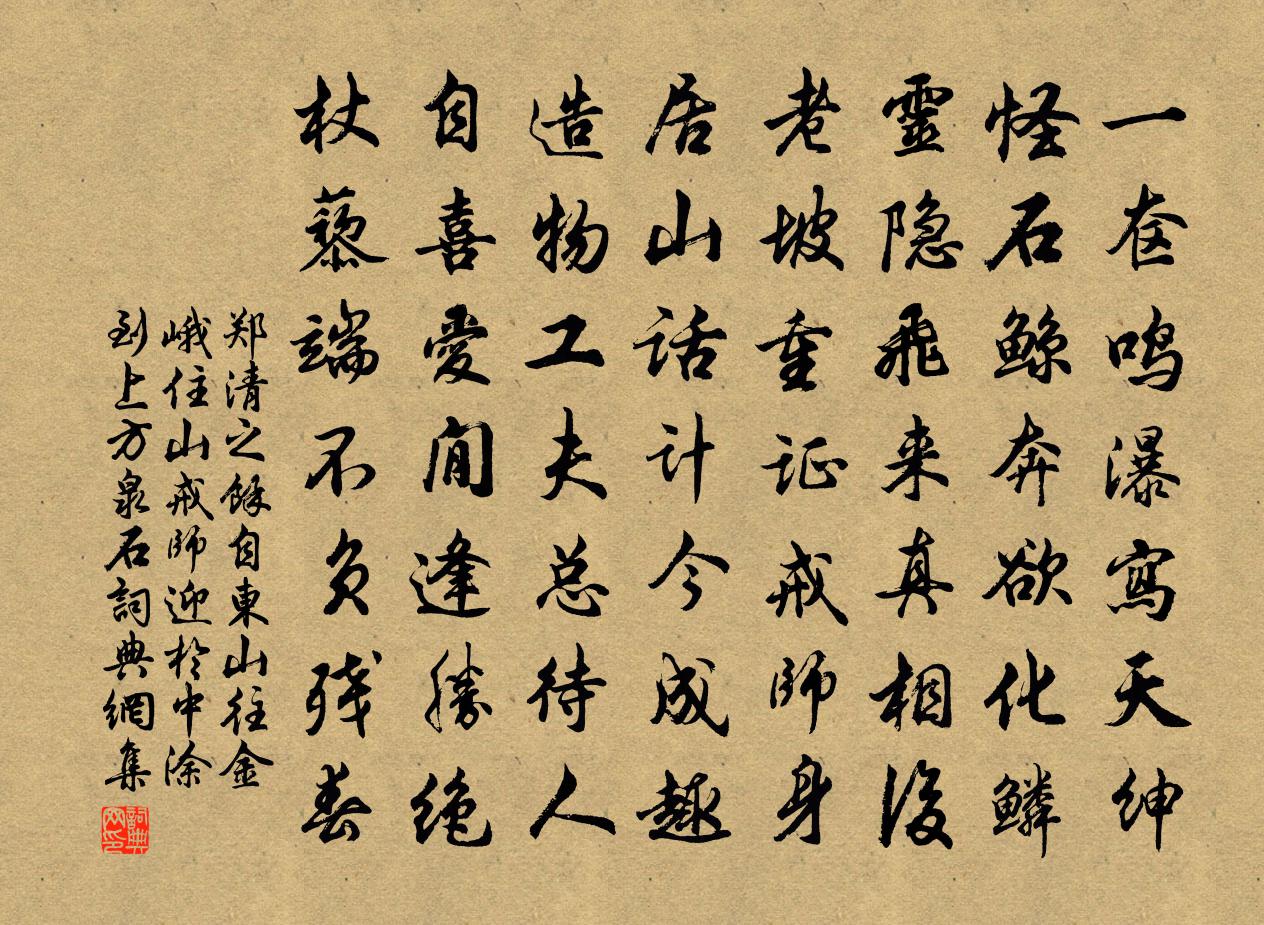 一奁鸣瀑寫天绅
怪石鲸奔欲化鳞
靈隐飛来真相後
老坡重证戒師身
居山话计今成趣
造物工夫总待人
自喜愛閒逢勝绝
杖藜端不负残春
郑清之餘自東山往金
峨住山戒師迎於中涂
到上方泉石詞典網集
詞典
网印